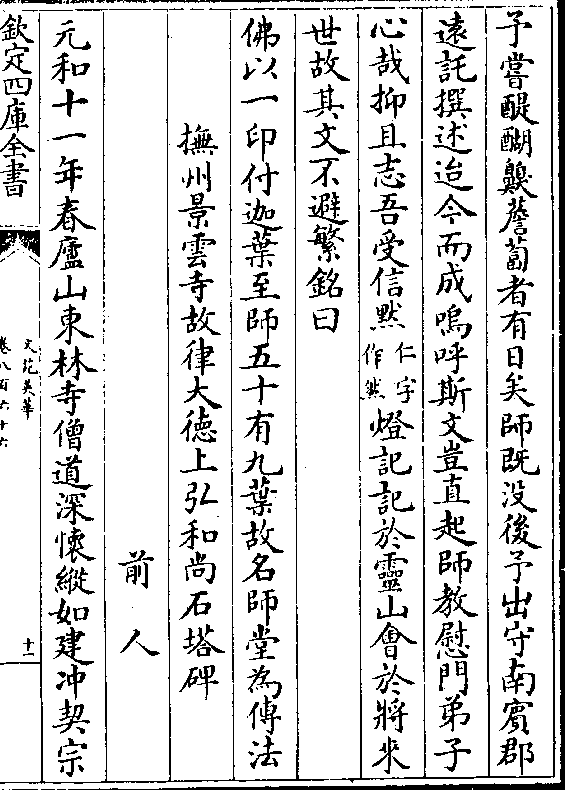 予嘗醍醐嗅薝蔔者有日矣師既没後予出守南賓郡
遠託撰述迨今而成嗚呼斯文豈直起師教慰門弟子
心哉抑且志吾受信黙仁字作然燈記記於靈山會於將來
世故其文不避繁銘曰
佛以一印付迦葉至師五十有九葉故名師堂為傳法
撫州景雲寺故律大徳上弘和尚石塔碑
前人
元和十一年春廬山東林寺僧道深懷縱如建冲契宗
欽定四庫全書
文苑英華
卷八百六十六
十一